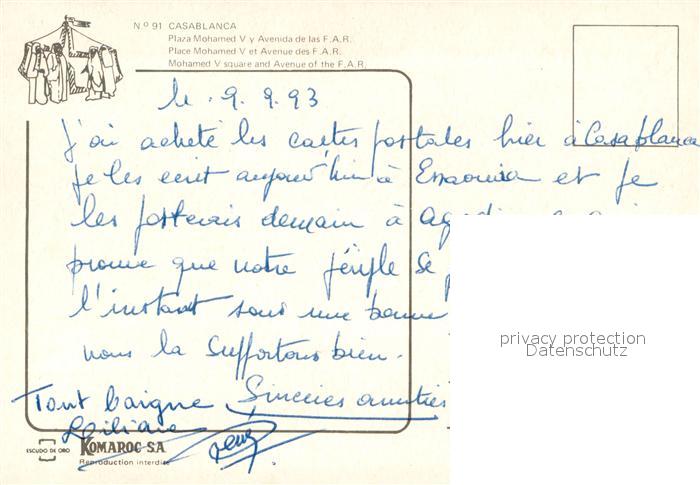 N.º 91 CASABLANCA
Plaza Mohamed V y Avenida de las F.A.R.
Place Mohamed V et Avenue des F.A.R.
Mohamed V square and Avenue of the F.A.R.
le . 9. 9. 93
J'ai acheté les cartes postales hier à Casablanca
je les ecrit aujourd'hui à Essaouira et je
les posterais demain à
prouve que notre périple se
l'instant sous une bonne
nous la supportons bien.
Tout baigne Sincères amitiés
Liliane
privacy protection
Datenschutz
ESCUDO DE ORO KOMAROC S.A.
Reproduction interdite